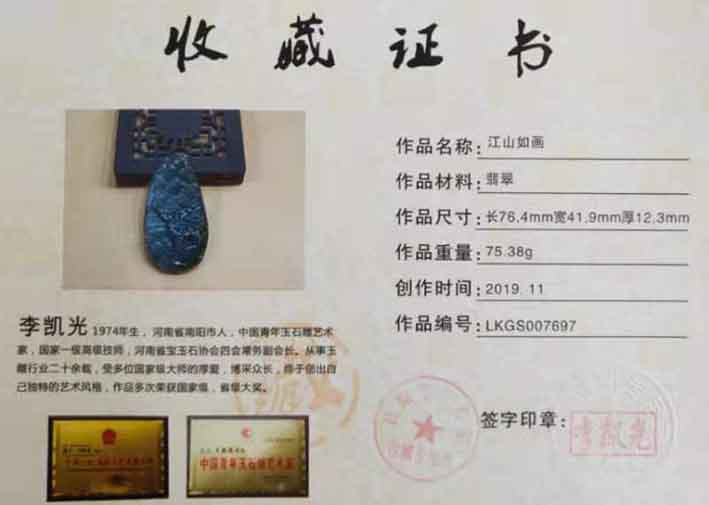 收藏证书
作品名称：江山如画
作品材料：翡翠
作品尺寸：长76.4mm宽41.9mm厚12.3mm
作品重量：75.38g
创作时间：2019.11
作品编号：LKGS007697
李凯光 1974年生，河南省南阳市人，中国青年玉石雕艺术
家，国家一级高级技师，河南省宝玉石协会四会常务副会长。从事玉
雕行业二十余载，受多位国家级大师的厚爱，博采众长，终于创出自
己独特的艺术风格，作品多次荣获国家级，省级大奖。
签字印章：
李凯光
中国青年玉石雕艺术家